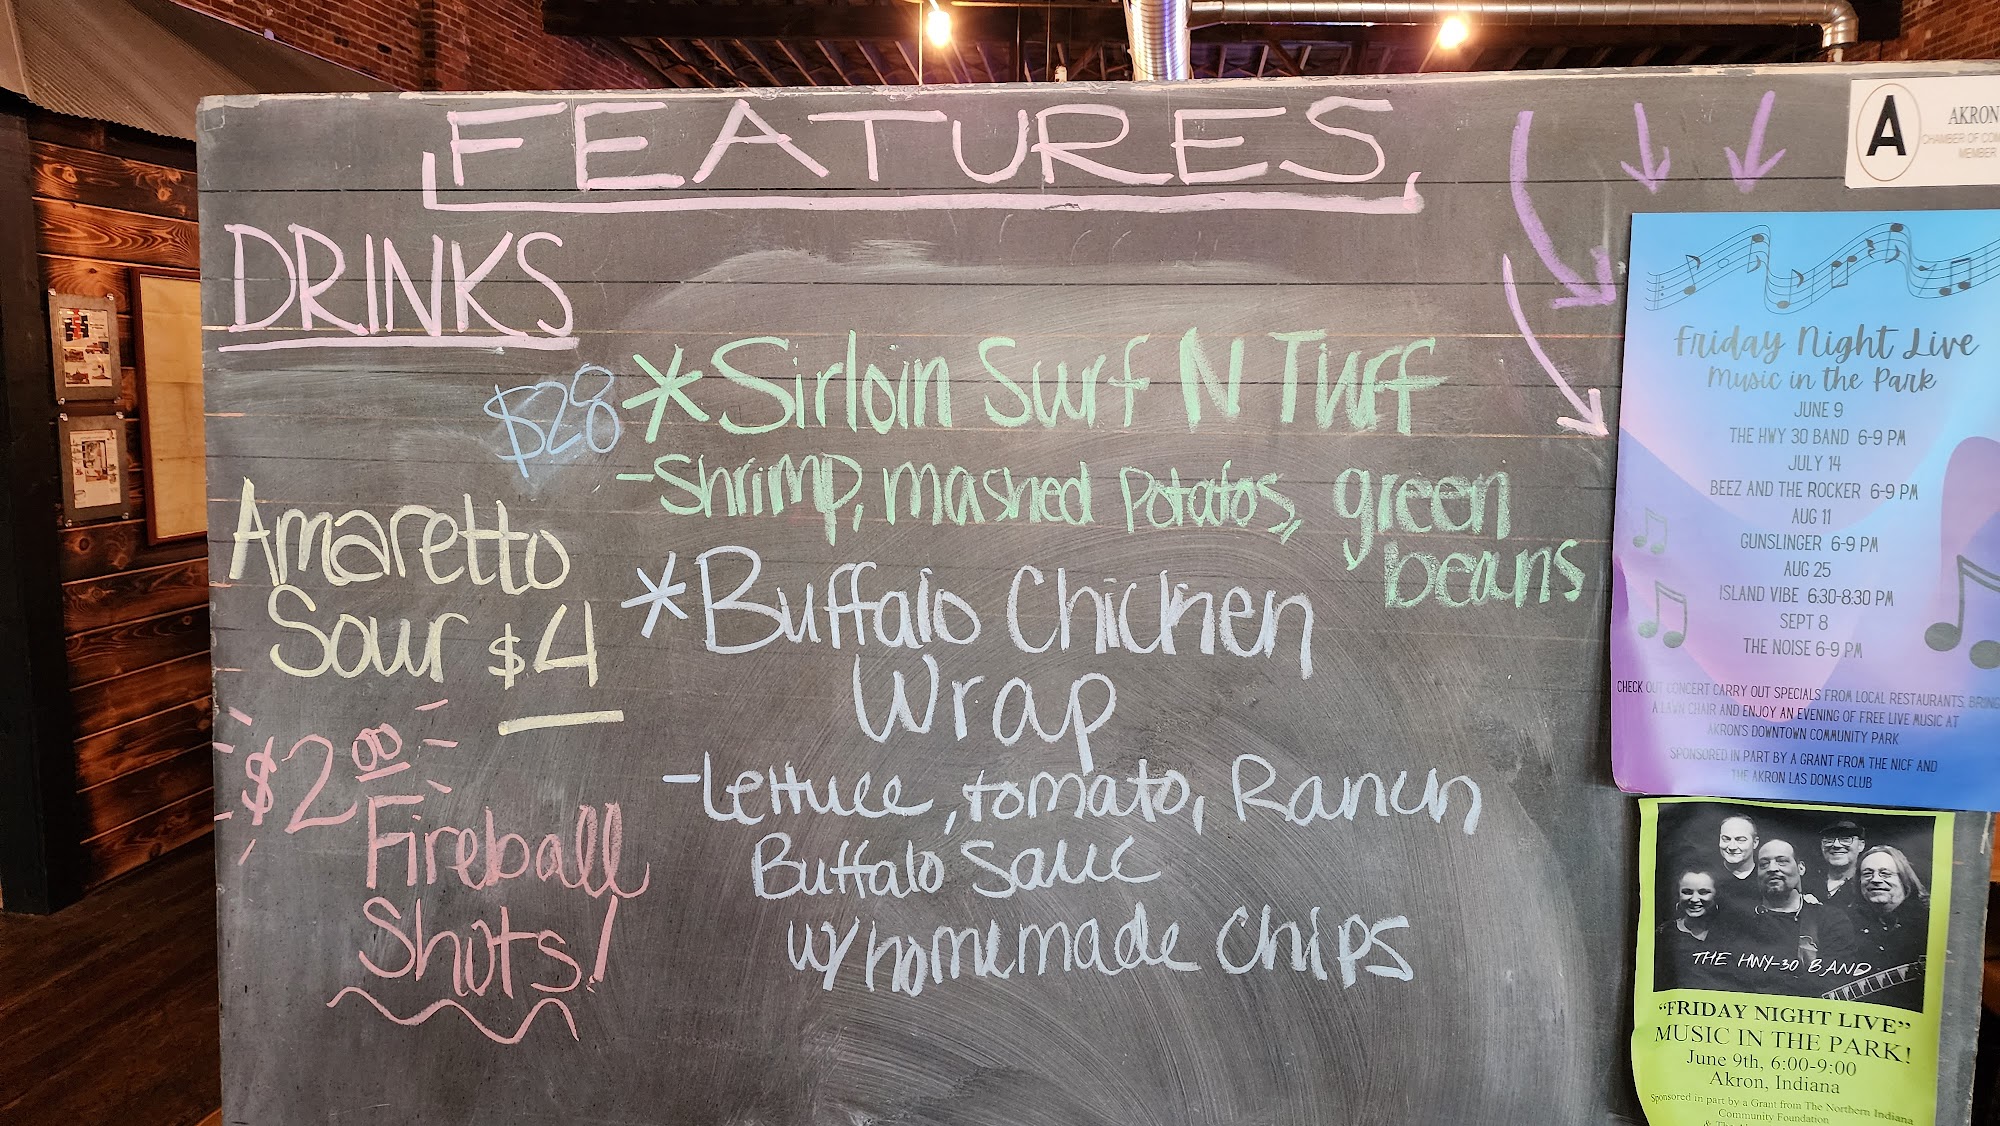 FEATURES
DRINKS
$28 *Sirloin Surf N Turf
-Shrimp, mashed Potatos, green
beans
Amaretto
Sour $4
*Buffalo Chicken
Wrap
-Lettuce, tomato, Ranch
Buffalo Sauc
w/homemade Chips
$2.00
Fireball
Shots!
A
AKRON
CHAMBER OF COM
MEMBER
Friday Night Live
Music in the Park
JUNE 9
THE HWY 30 BAND 6-9 PM
JULY 14
BEEZ AND THE ROCKER 6-9 PM
AUG 11
GUNSLINGER 6-9 PM
AUG 25
ISLAND VIBE 6:30-8:30 PM
SEPT 8
THE NOISE 6-9 PM
CHECK OUT CONCERT CARRY OUT SPECIALS FROM LOCAL RESTAURANTS. BRING
A LAWN CHAIR AND ENJOY AN EVENING OF FREE LIVE MUSIC AT
AKRON'S DOWNTOWN COMMUNITY PARK
SPONSORED IN PART BY A GRANT FROM THE NICF AND
THE AKRON LAS DONAS CLUB
THE HWY-30 BAND
"FRIDAY NIGHT LIVE"
MUSIC IN THE PARK!
June 9th, 6:00-9:00
Akron, Indiana
Sponsored in part by a Grant from The Northern Indiana
Community Foundation